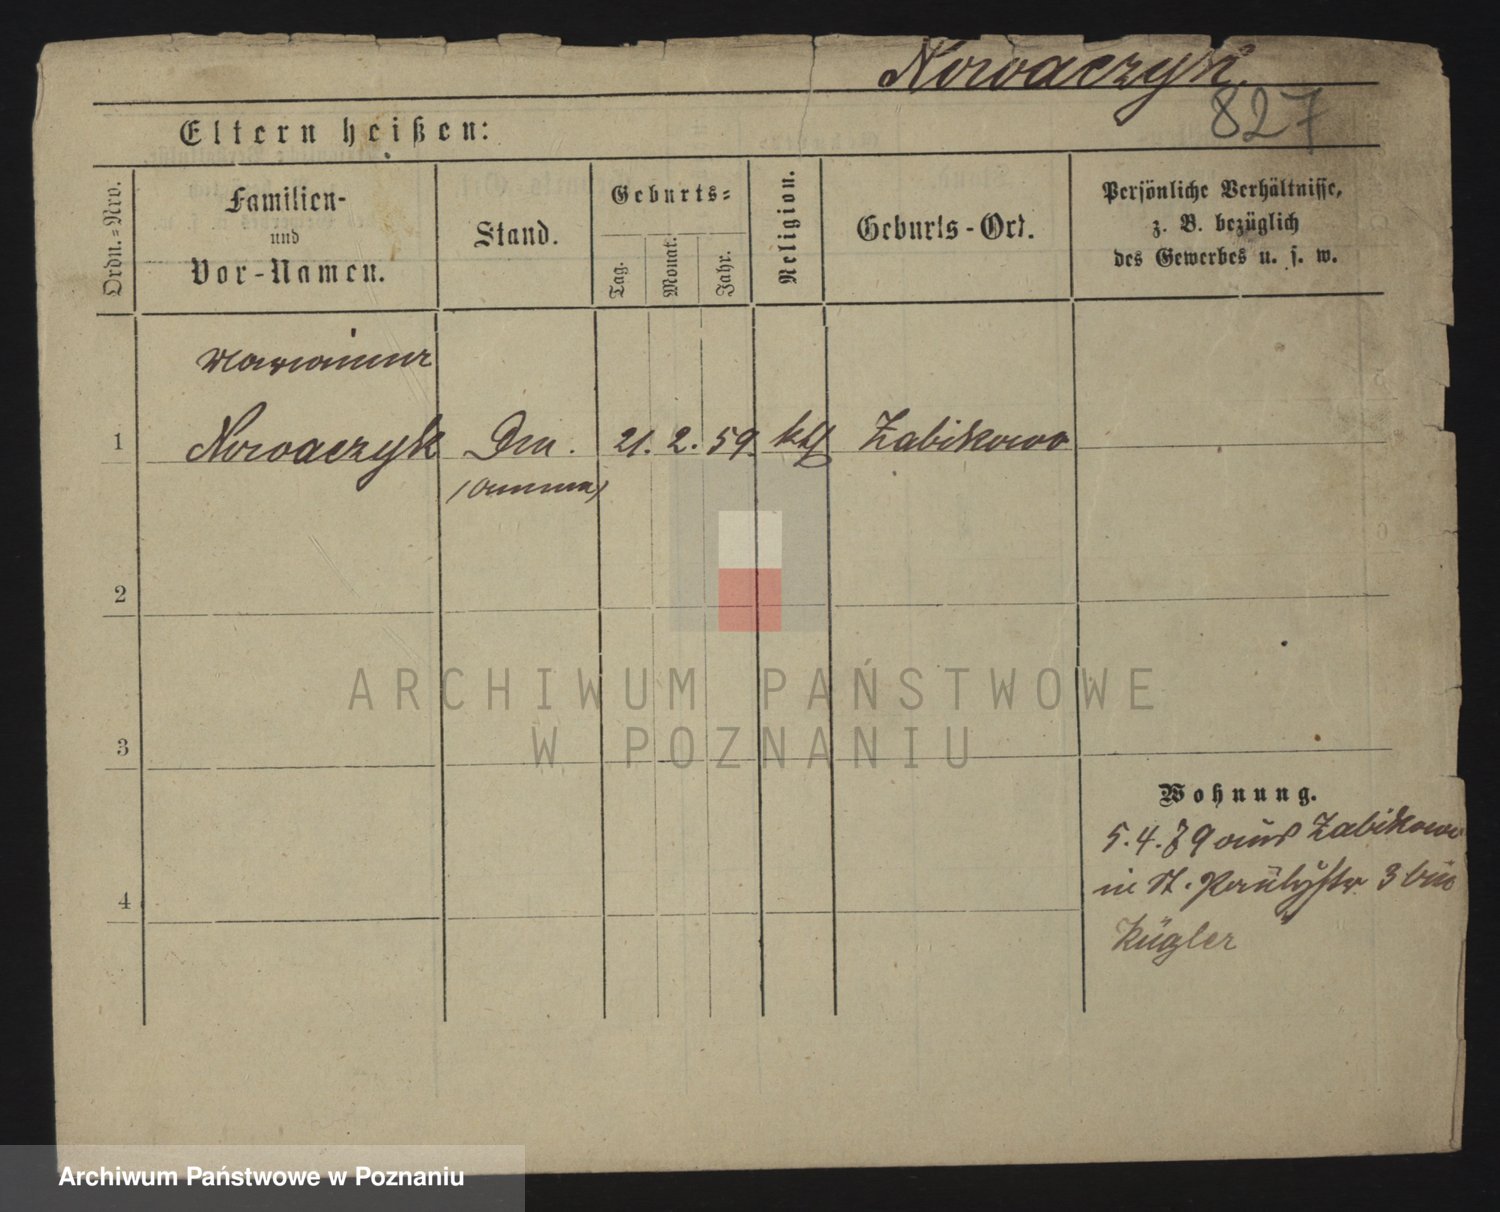 Nowaczyk.
827
Eltern heißen:
Ordn.=Nro.
Familien-
und
Vor-Namen.
Stand.
Geburts=
Tag.
Monat.
Jahr.
Religion.
Geburts-Ort.
Persönliche Verhältnisse,
z. B. bezüglich
des Gewerbes u. s. w.
1
Nowaczyk
21. 2. 59. kth Zabikowo
(Amme)
2
3
4
ARCHIWUM PAŃSTWOWE
W POZNANIU
Wohnung.
5. 4. 79 aus Zabikowo
in St. 3
Kügler
Archiwum Państwowe w Poznaniu